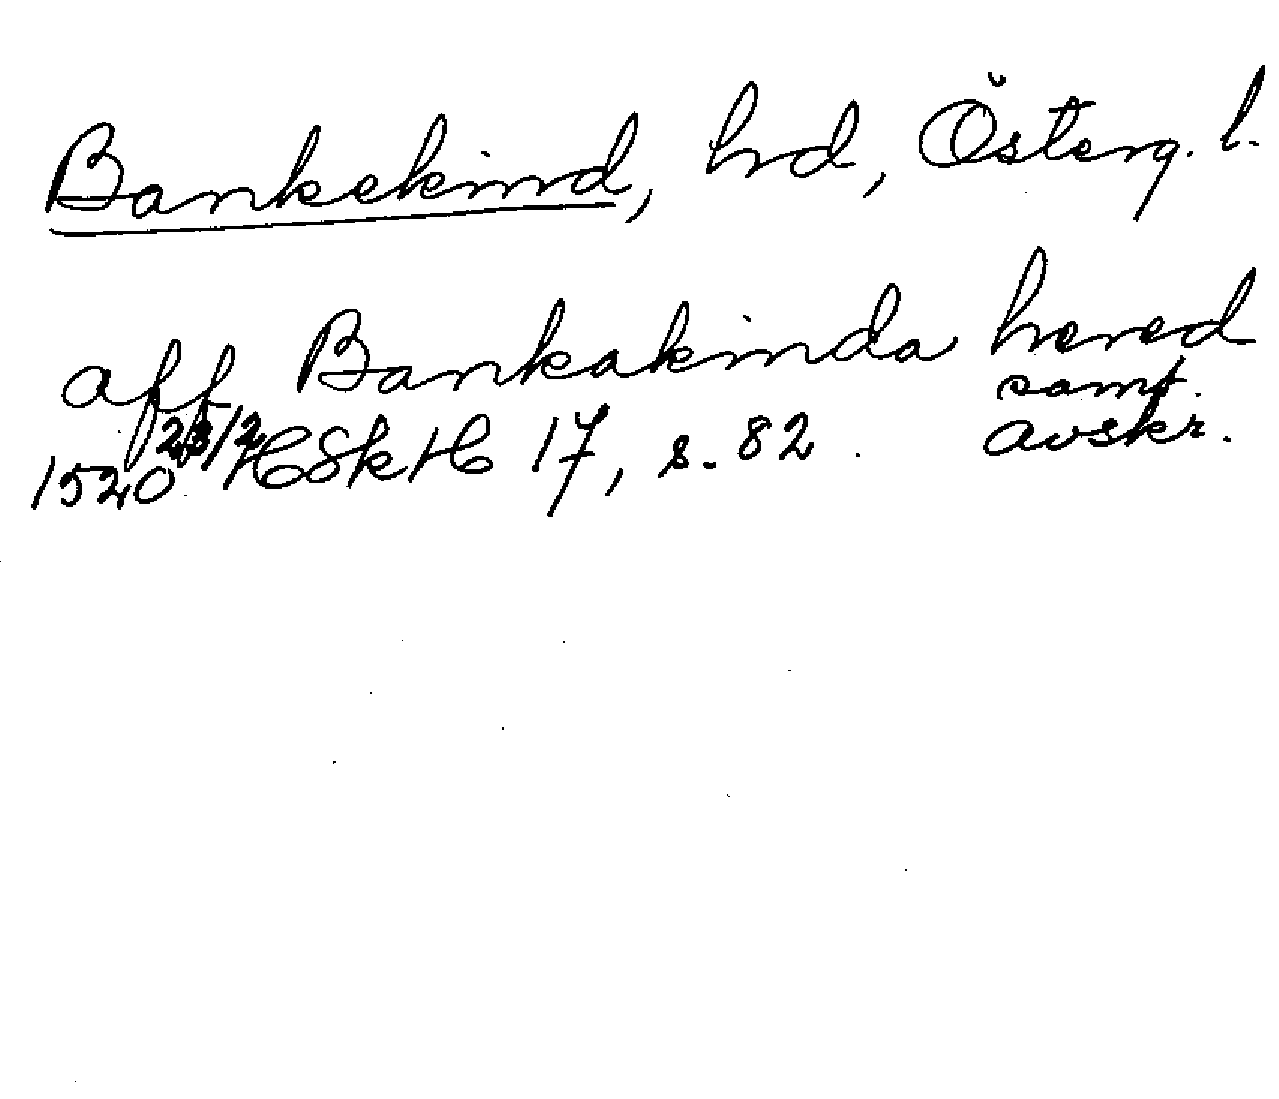 Bankekind, hd, Österg. l.
aff Bankakinda hered
samt.
1520 23/2 HSkH 17, s. 82. avskr.